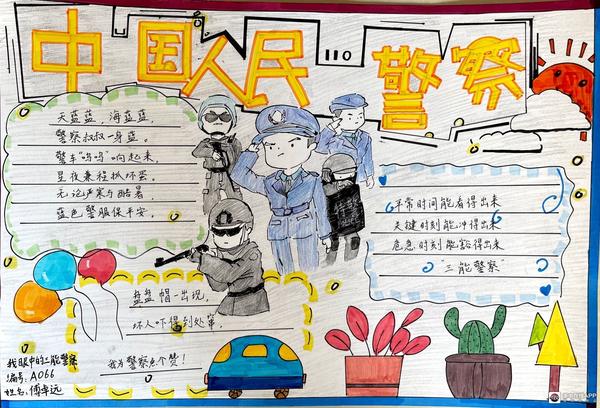 中国人民110警察
天蓝蓝,海蓝蓝,
警察叔叔一身蓝。
警车“呜呜”响起来,
星夜兼程抓坏蛋。
无论严寒与酷暑,
蓝色警服保平安。
平常时间能看得出来
关键时刻能冲得出来
危急时刻能豁得出来
“三能警察”
盘盘帽一出现,
坏人吓得到处窜,
我为警察点个赞!
我眼中的三能警察
编号:A066
姓名:傅幸远